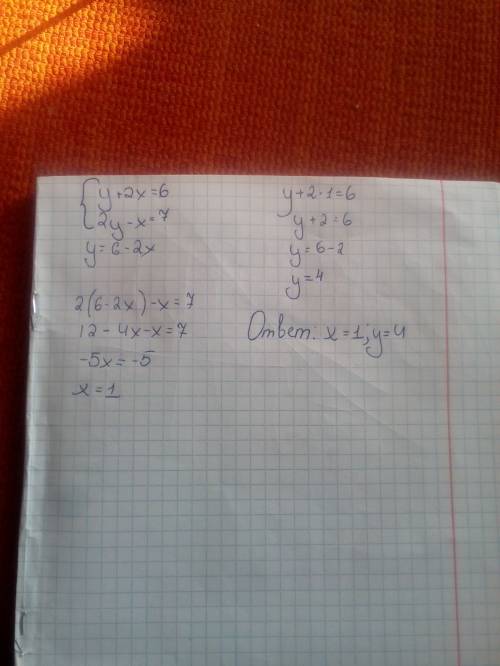 { y+2x=6
2y-x=7
y=6-2x
2(6-2x)-x=7
12-4x-x=7
-5x=-5
x=1
y+2·1=6
y+2=6
y=6-2
y=4
Ответ: x=1; y=4